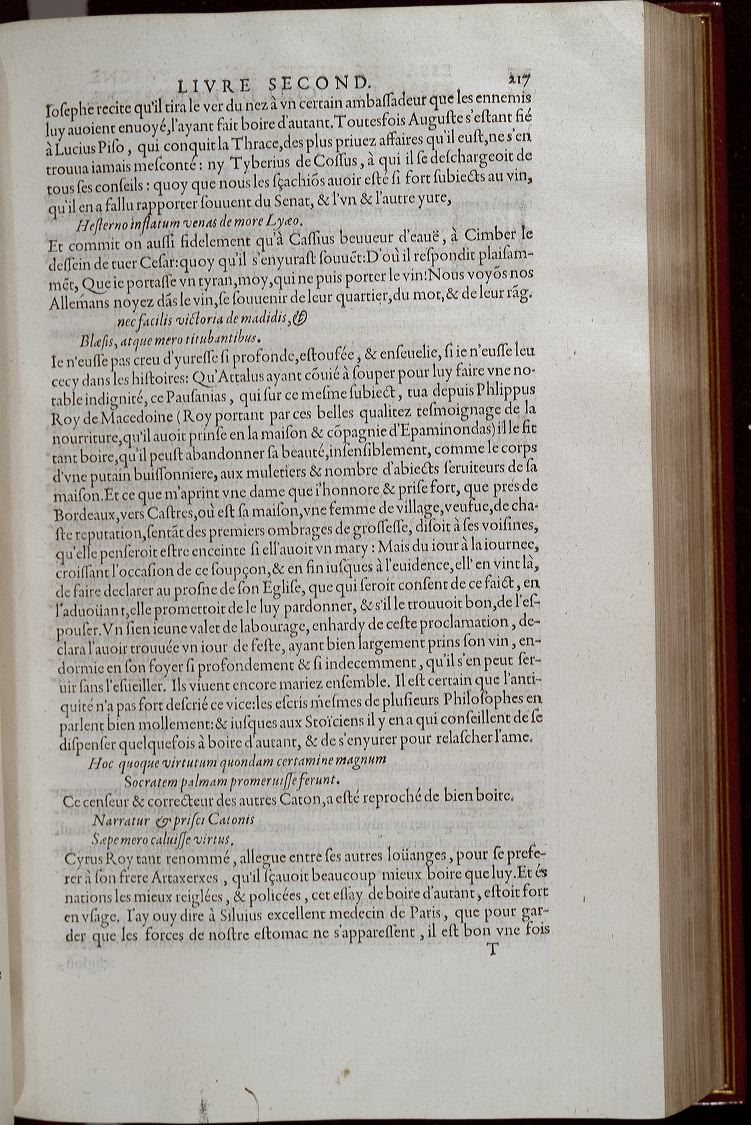 LIVRE SECOND. 217
Ioſephe recite qu'il tira le ver du nez à vn certain ambaſſadeur que les ennemis
luy auoient enuoyé,l'ayant fait boire d'autant.Toutesfois Auguſte s'eſtant fié
à Lucius Piſo, qui conquit la Thrace,des plus priuez affaires qu'il euſt,ne s'en
trouua iamais meſconté: ny Tyberius de Coſſus, à qui il ſe deſchargeoit de
tous ſes conſeils: quoy que nous les ſçachiõs auoir eſté ſi fort ſubiects au vin,
qu'il en a fallu rapporter ſouuent du Senat, & l'vn & l'autre yure,
Heſterno inflatum venas de more Lyæo.
Et commit on auſſi fidelement qu'à Caſſius beuueur d'eauë, à Cimber le
deſſein de tuer Ceſar:quoy qu'il s'enyuraſt ſouuẽt:D'où il reſpondit plaiſam-
mẽt, Que ie portaſſe vn tyran,moy,qui ne puis porter le vin!Nous voyõs nos
Allemans noyez dãs le vin,ſe ſouuenir de leur quartier,du mot,& de leur rãg.
nec facilis victoria de madidis,&
Blæſis, atque mero titubantibus.
Ie n'euſſe pas creu d'yureſſe ſi profonde,eſtoufée, & enſeuelie, ſi ie n'euſſe leu
cecy dans les hiſtoires: Qu'Attalus ayant cõuié à ſouper pour luy faire vne no-
table indignité, ce Pauſanias, qui ſur ce meſme ſubiect, tua depuis Phlippus
Roy de Macedoine (Roy portant par ces belles qualitez teſmoignage de la
nourriture,qu'il auoit prinſe en la maiſon & cõpagnie d'Epaminondas) il le fit
tant boire,qu'il peuſt abandonner ſa beauté,inſenſiblement, comme le corps
d'vne putain buiſſonniere, aux muletiers & nombre d'abiects ſeruiteurs de ſa
maiſon.Et ce que m'aprint vne dame que i'honnore & priſe fort, que pres de
Bordeaux,vers Caſtres,où eſt ſa maiſon,vne femme de village,veufue,de cha-
ſte reputation,ſentãt des premiers ombrages de groſſeſſe, diſoit à ſes voiſines,
qu'elle penſeroit eſtre enceinte ſi ell'auoit vn mary : Mais du iour à la iournee,
croiſſant l'occaſion de ce ſoupçon,& en fin iuſques à l'euidence,ell' en vint là,
de faire declarer au proſne de ſon Egliſe, que qui ſeroit conſent de ce faict, en
l'aduoüant,elle promettoit de le luy pardonner, & s'il le trouuoit bon,de l'eſ-
pouſer.Vn ſien ieune valet de labourage, enhardy de ceſte proclamation, de-
clara l'auoir trouuée vn iour de feſte, ayant bien largement prins ſon vin, en-
dormie en ſon foyer ſi profondement & ſi indecemment, qu'il s'en peut ſer-
uir ſans l'eſueiller. Ils viuent encore mariez enſemble. Il eſt certain que l'anti-
quité n'a pas fort deſcrié ce vice:les eſcris meſmes de pluſieurs Philoſophes en
parlent bien mollement:& iuſques aux Stoïciens il y en a qui conſeillent de ſe
diſpenſer quelquefois à boire d'autant, & de s'enyurer pour relaſcher l'ame.
Hoc quoque virtutum quondam certamine magnum
Socratem palmam promeruiſſe ferunt.
Ce cenſeur & correcteur des autres Caton,a eſté reproché de bien boire.
Narratur & priſci Catonis
Sæpe mero caluiſſe virtus.
Cyrus Roy tant renommé, allegue entre ſes autres loüanges, pour ſe prefe-
rer à ſon frere Artaxerxes, qu'il ſçauoit beaucoup mieux boire que luy.Et és
nations les mieux reiglées, & policées, cet eſſay de boire d'autant, eſtoit fort
en vſage. I'ay ouy dire à Siluius excellent medecin de Paris, que pour gar-
der que les forces de noſtre eſtomac ne s'appareſſent, il eſt bon vne fois
T